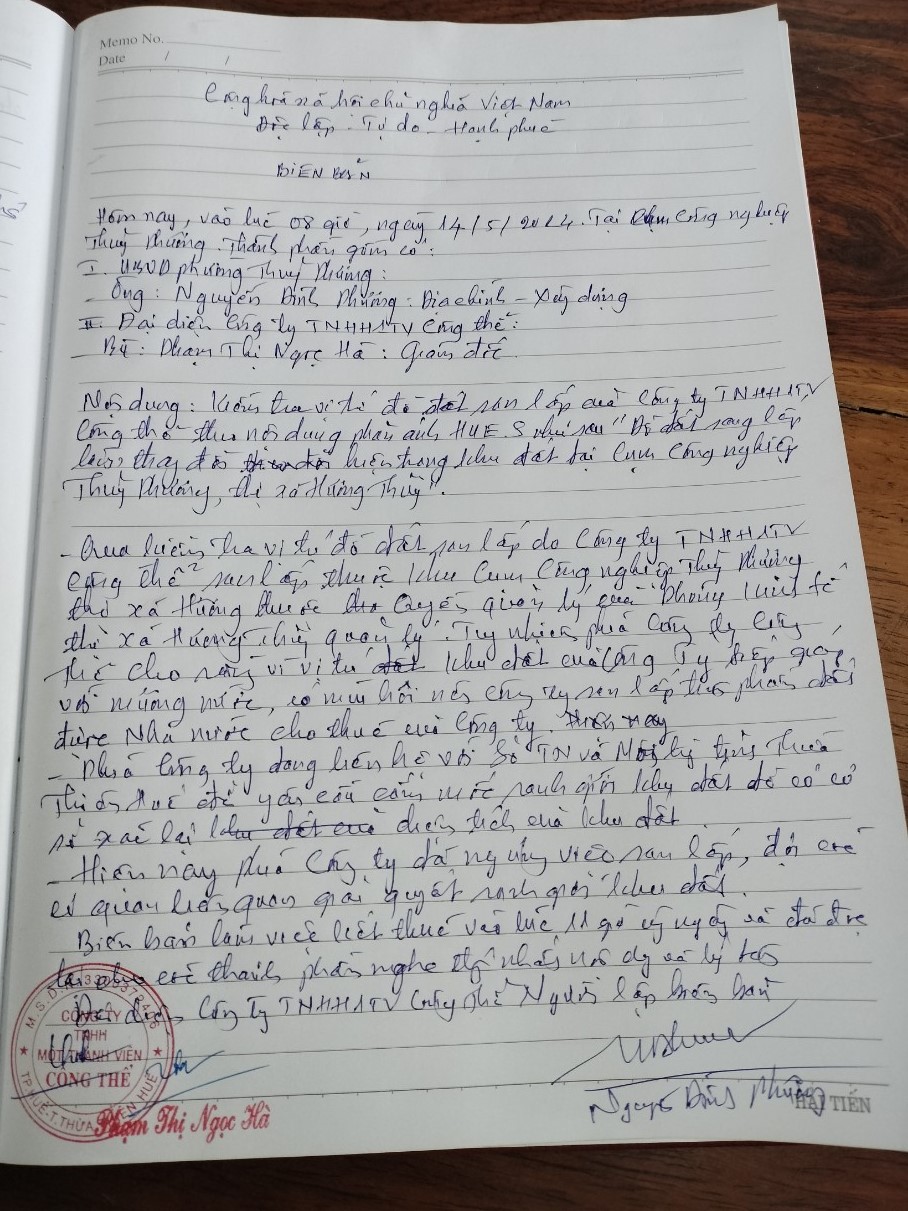 Memo No.
Date / /
Cộng hoà xã hội chủ nghĩa Việt Nam
Độc lập - Tự do - Hạnh phúc
BIÊN BẢN
Hôm nay, vào lúc 08 giờ, ngày 14/5/2024. Tại Cụm Công nghiệp
Thuỷ Phương. Thành phần gồm có:
I. UBND phường Thuỷ Phương:
- Ông: Nguyễn Đình Phương: Địa chính - Xây dựng
II. Đại diện Công ty TNHHMTV Công Thể:
Bà: Phạm Thị Ngọc Hà: Giám đốc
Nội dung: Kiểm tra vị trí đổ đất san lấp của Công ty TNHHMTV
Công Thể theo nội dung phản ánh HUE.S như sau "Đổ đất sang lấp
làm thay đổi hiện trạng khu đất tại Cụm Công nghiệp
Thuỷ Phương, thị xã Hương Thuỷ".
- Qua kiểm tra vị trí đổ đất san lấp do Công ty TNHHMTV
Công Thể san lấp thuộc khu Cụm Công nghiệp Thuỷ Phương
thị xã Hương thuộc quyền quản lý của Phòng Kinh tế
thị xã Hương Thuỷ quản lý. Tuy nhiên phía Công ty Công
Thể cho rằng vì vị trí khu đất của Công Ty tiếp giáp
với mương nước, có mùi hôi nên công ty san lấp phần đất
được Nhà nước cho thuê của Công ty.
- Phía Công ty đang liên hệ với Sở TN và Môi trường tỉnh Thừa
Thiên Huế để yêu cầu cắm mốc ranh giới khu đất để có cơ
sở xác lại diện tích của khu đất.
- Hiện nay phía Công ty đã ngưng việc san lấp, đợi các
cơ quan liên quan giải quyết ranh giới khu đất.
Biên bản làm việc kết thúc vào lúc 11 giờ cùng ngày và đã được
các thành phần nghe nội dung và ký tên
Đại diện Công ty TNHHMTV Công Thể Người lập biên bản
CÔNG TY
TNHH
MỘT THÀNH VIÊN
CÔNG THỂ
Phạm Thị Ngọc Hà
Nguyễn Đình Phương
HẢI TIẾN